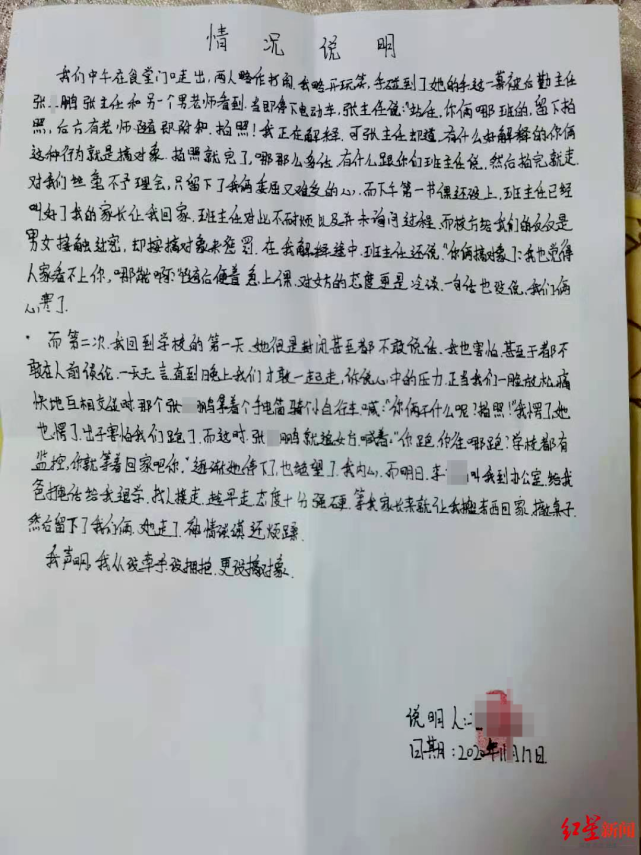 情况说明
我们中午在食堂门口走出，两人略作打闹，我略开玩笑，手碰到了她的手这一幕被后勤主任
张 鹏张主任和另一个男老师看到，当即停下电动车，张主任说：“站住，你俩哪班的，留下拍
照，后方有老师随即附和，拍照！我正在解释，可张主任却道，有什么好解释的你俩
这种行为就是搞对象，拍照就完了，哪那么多话，有什么跟你们班主任说，然后拍完就走.
对我们丝毫不予理会，只留下了我俩委屈又难受的心，而下午第一节课还没上，班主任已经
叫好了我的家长让我回家，班主任对此不耐烦以及并未询问过程，而校方给我们的反应是
男女接触过密，却按搞对象来惩罚，在我解释途中，班主任还说，“你俩搞对象了？我也觉得
人家看不上你，哪能啊”，随后便着急上课，对女方的态度更是冷淡，一句话也没说，我们俩
心寒了.
而第二次，我回到学校的第一天，她很是封闭甚至都不敢说话，我也害怕，甚至于都不
敢在人前谈论，一天无言直到晚上我们才敢一起走，诉说心中的压力，正当我们一脸放松痛
快地互相交谈时，那个张 鹏拿着个手电筒骑个自行车喊：“你俩干什么呢？拍照！”我愣了，她
也愣了，出于害怕我们跑了，而这时，张 鹏就追女方，喊着：“你跑，你往哪跑？学校都有
监控，你就等着回家吧你，”逼迫她停下了，也绝望了我内心，而明日，李 叫我到办公室，给我
爸打电话给我退学，找人接走，越早走态度十分强硬，等我家长来就让我搬东西回家，搬桌子.
然后留下了我们俩，她走了，神情淡漠还烦躁.
我声明，我从没牵手没拥抱，更没搞对象.
说明人：
日期：2020年11月17日
红星新闻